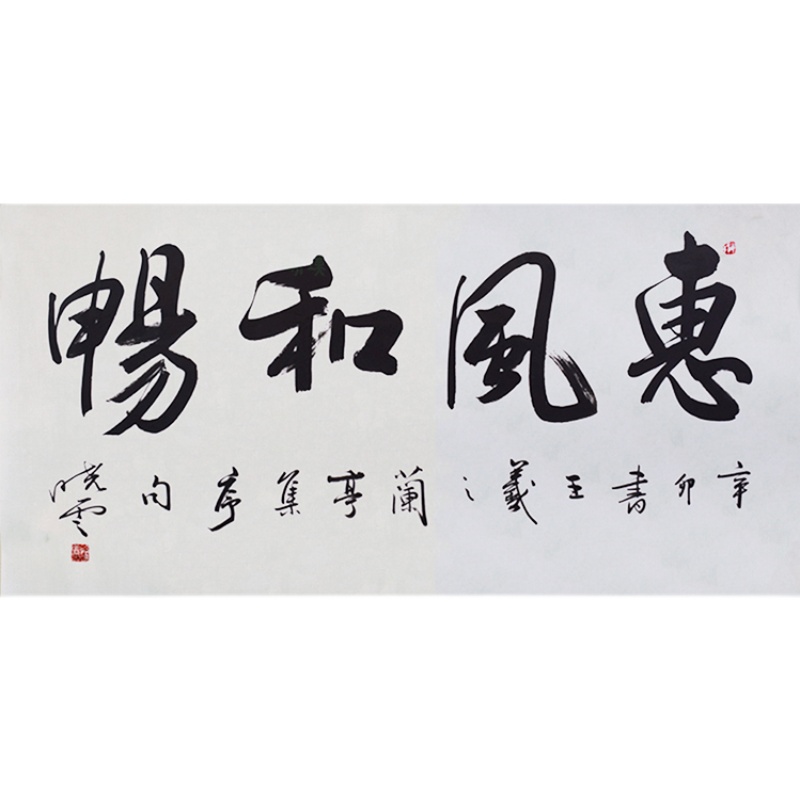 惠風和暢
辛卯書王羲之蘭亭集序句
曉雲